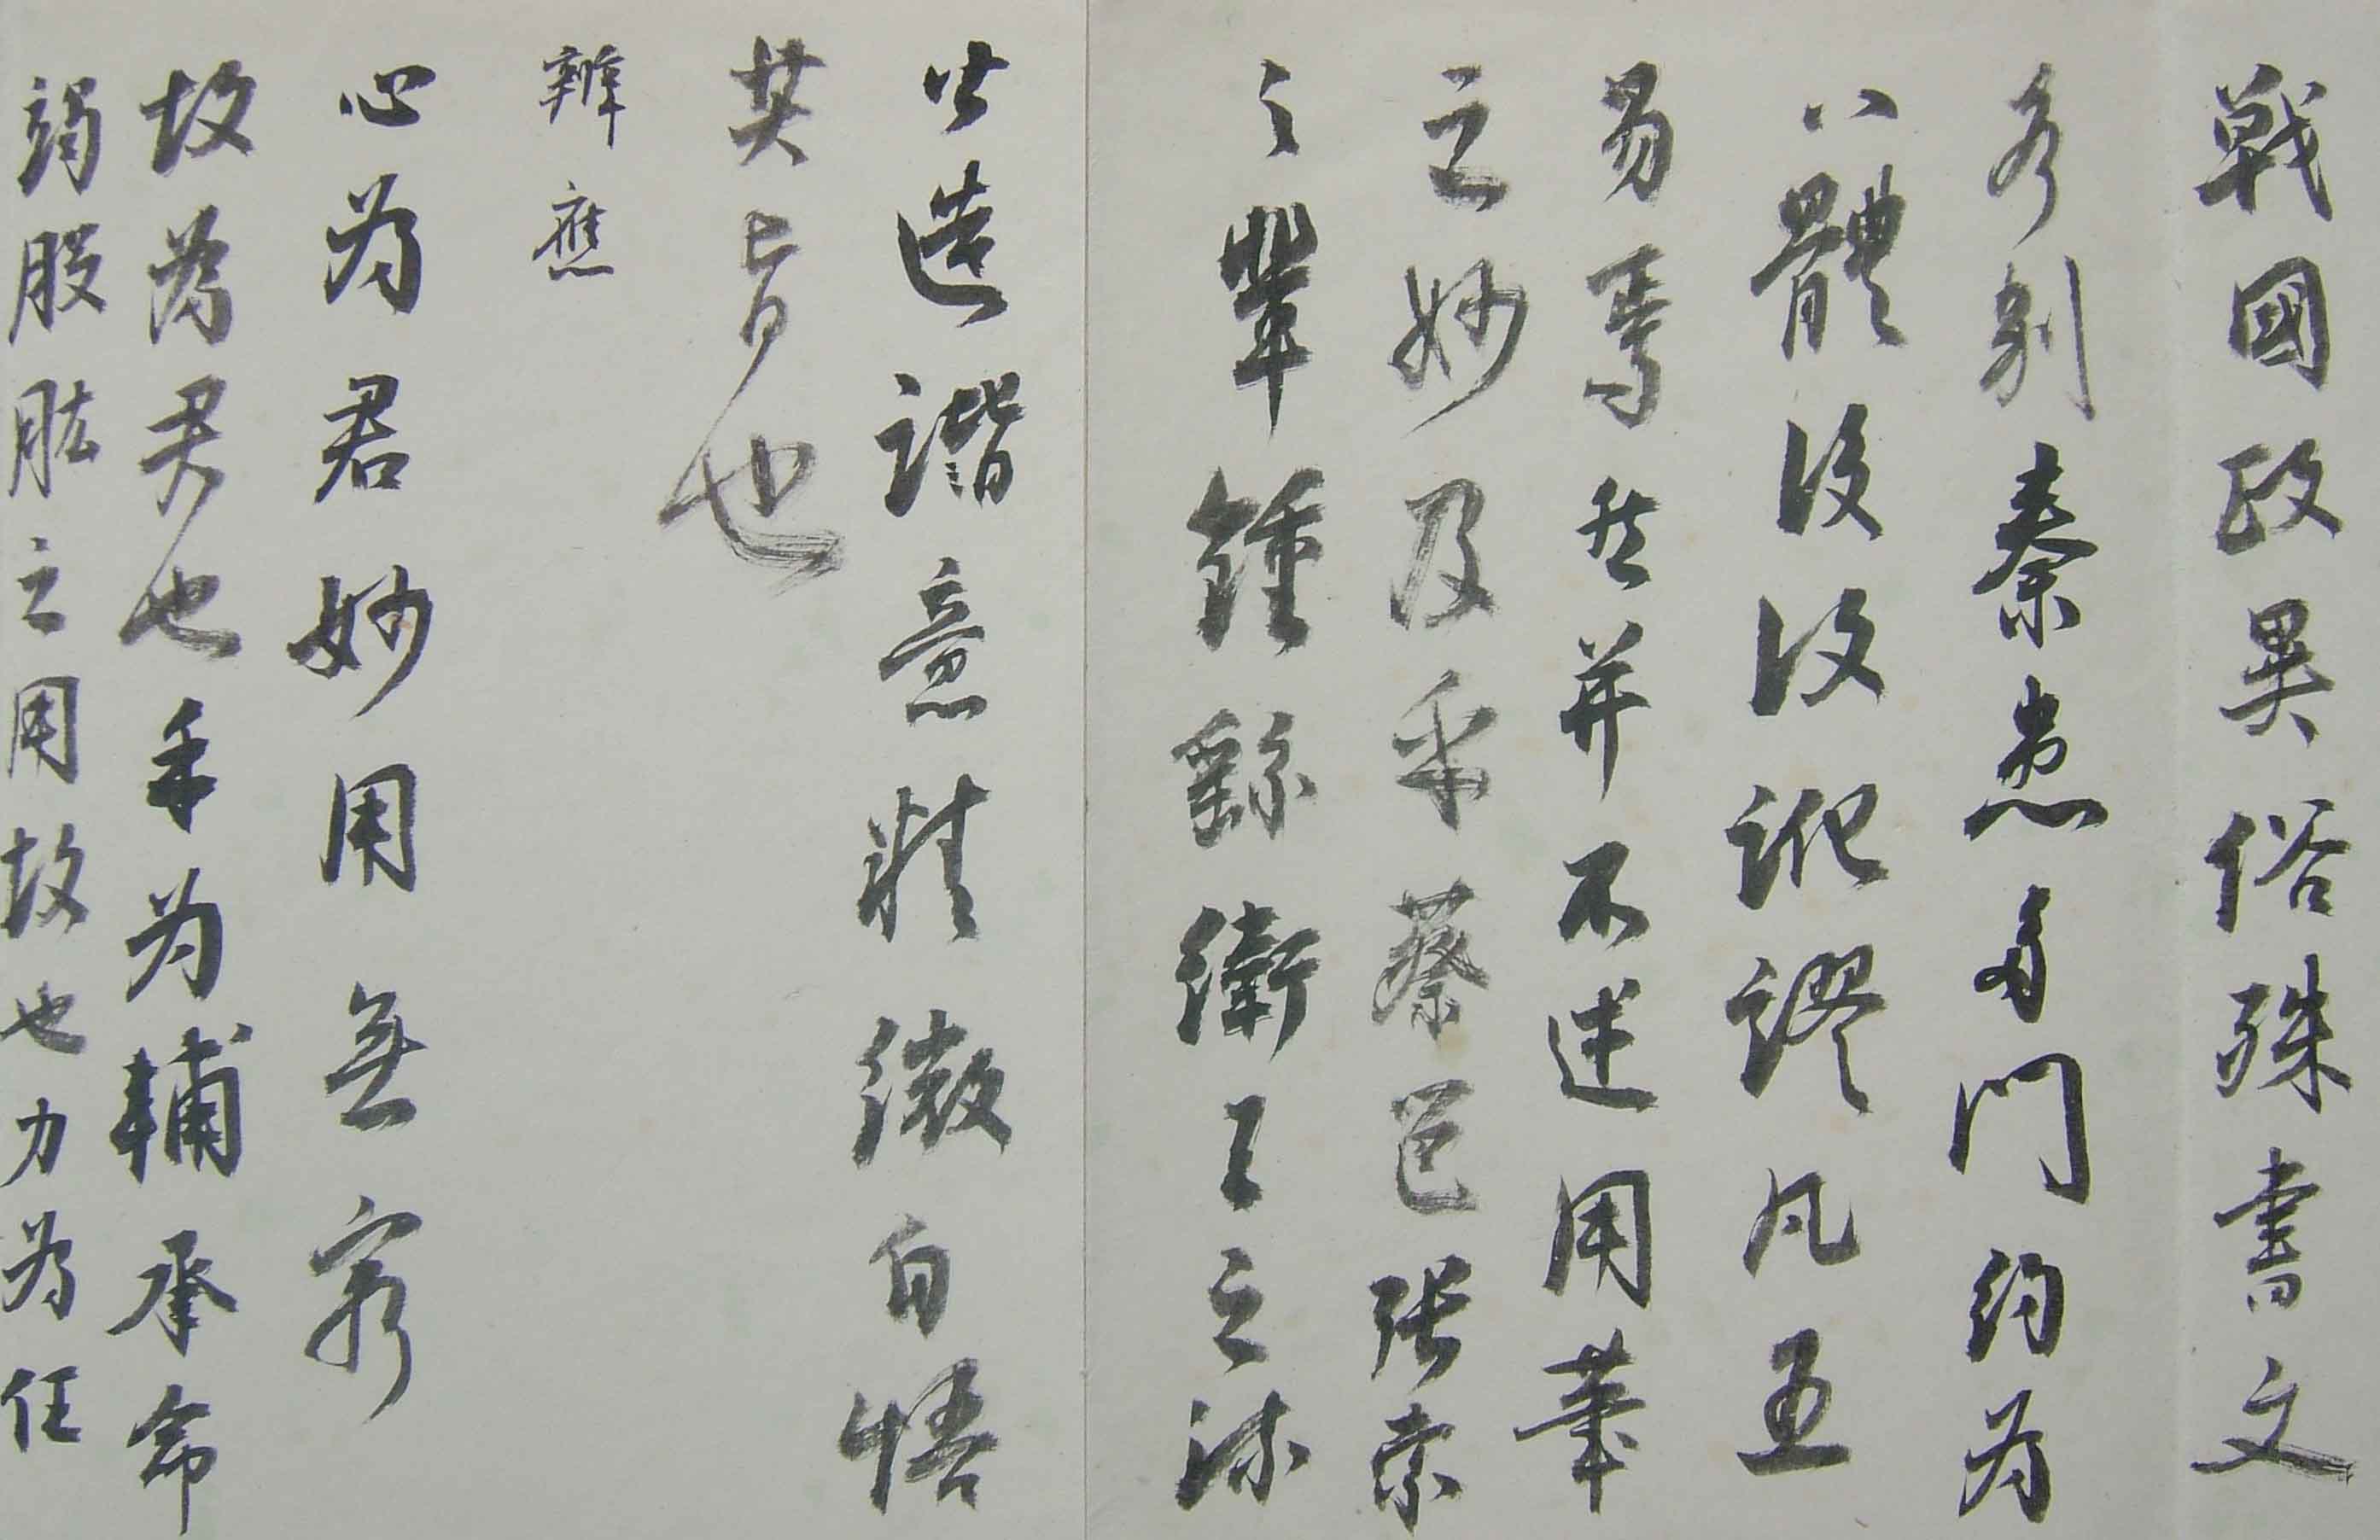 戰國政異俗殊書文
各別秦患多門約為
八體後復訛謬凡五
易焉然并不述用筆
之妙及乎蔡邕張索
之輩鍾繇衛王之流
皆造諧意精微自悟
其旨也
辨應
心為君妙用無窮
故為君也手為輔承命
竭股肱之用故也力為任